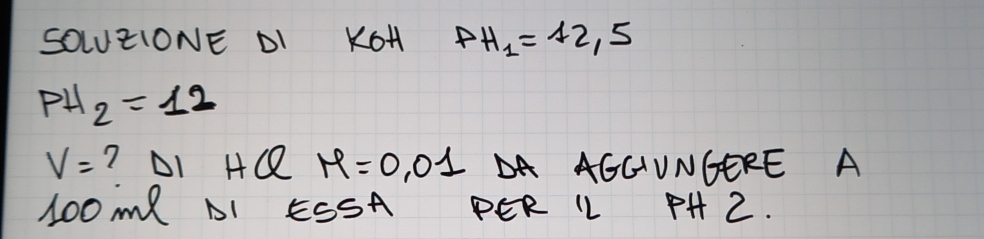 SOLUZIONE DI KOH PH₁=12,5
PH₂=12
V=? DI HCl M=0,01 DA AGGIUNGERE A
100 ml DI ESSA PER IL PH 2.